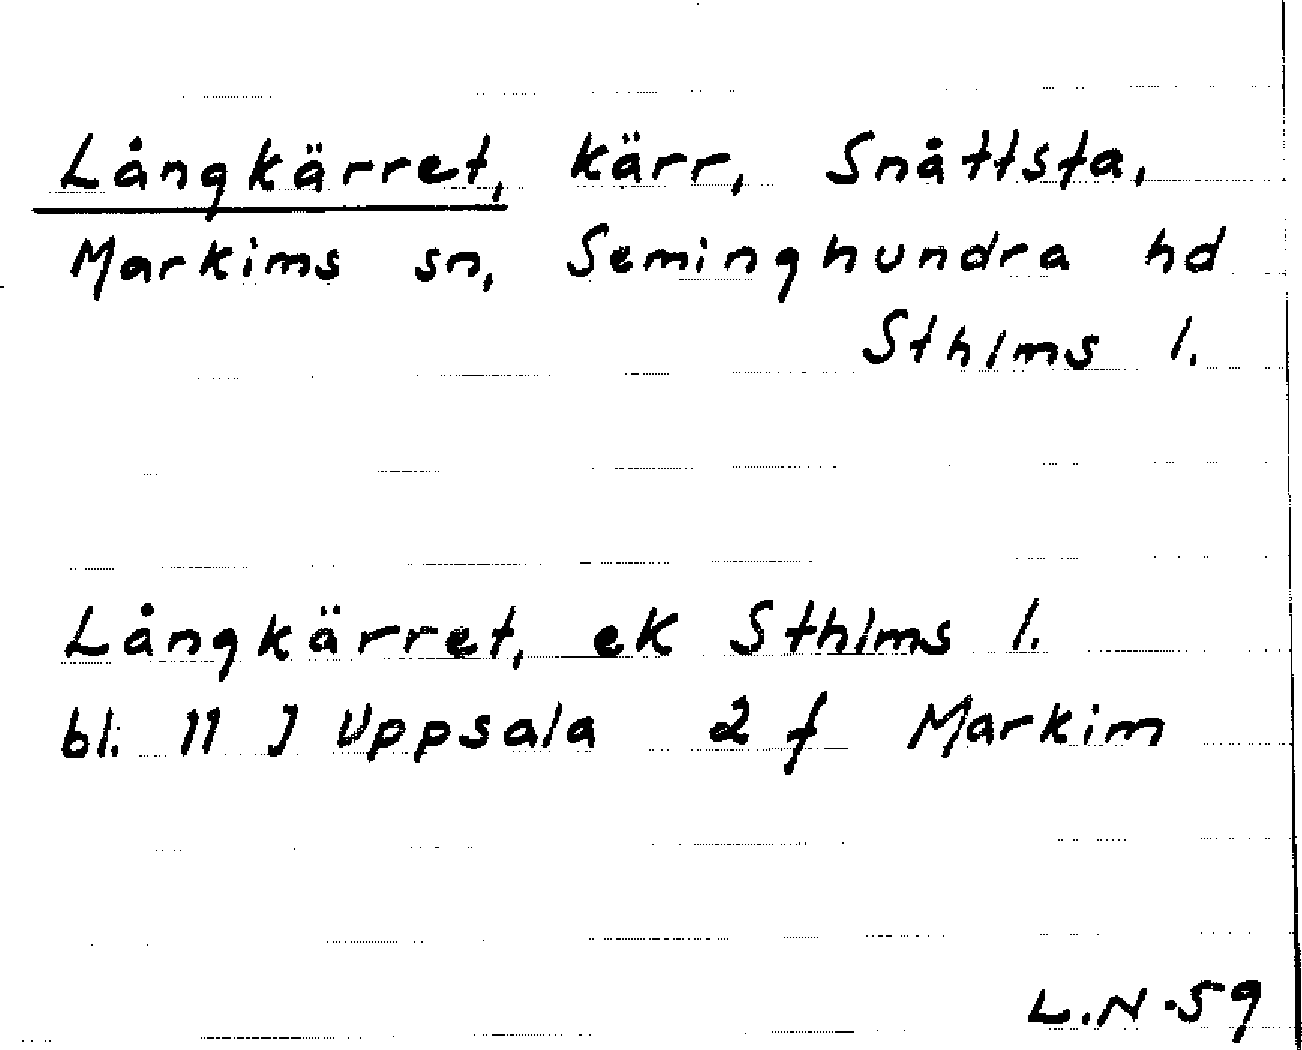 Långkärret, kärr, Snåttsta,
Markims sn, Seminghundra hd
Sthlms l.
Långkärret, ek Sthlms l.
bl. 11 J Uppsala 2 f Markim
L.N.59